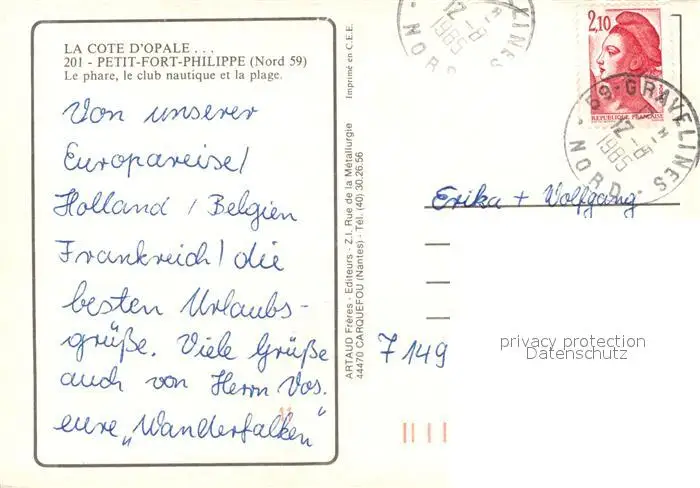 LA COTE D'OPALE . . .
201 - PETIT-FORT-PHILIPPE (Nord 59)
Le phare, le club nautique et la plage.
Von unserer
Europareise/
Holland / Belgien
Frankreich / die
besten Urlaubs-
grüße. Viele Grüße
auch von Herrn Vos.
eure „Wanderfalken"
Imprimé en C.E.E.
ARTAUD Frères - Editeurs - Z.I. Rue de la Métallurgie
44470 CARQUEFOU (Nantes) - Tél. (40) 30.26.56
2,10
REPUBLIQUE FRANÇAISE
59-GRAVELINES
12-8
1985
NORD
LINES
12-8
1985
NORD
Erika + Wolfgang
7149
privacy protection
Datenschutz